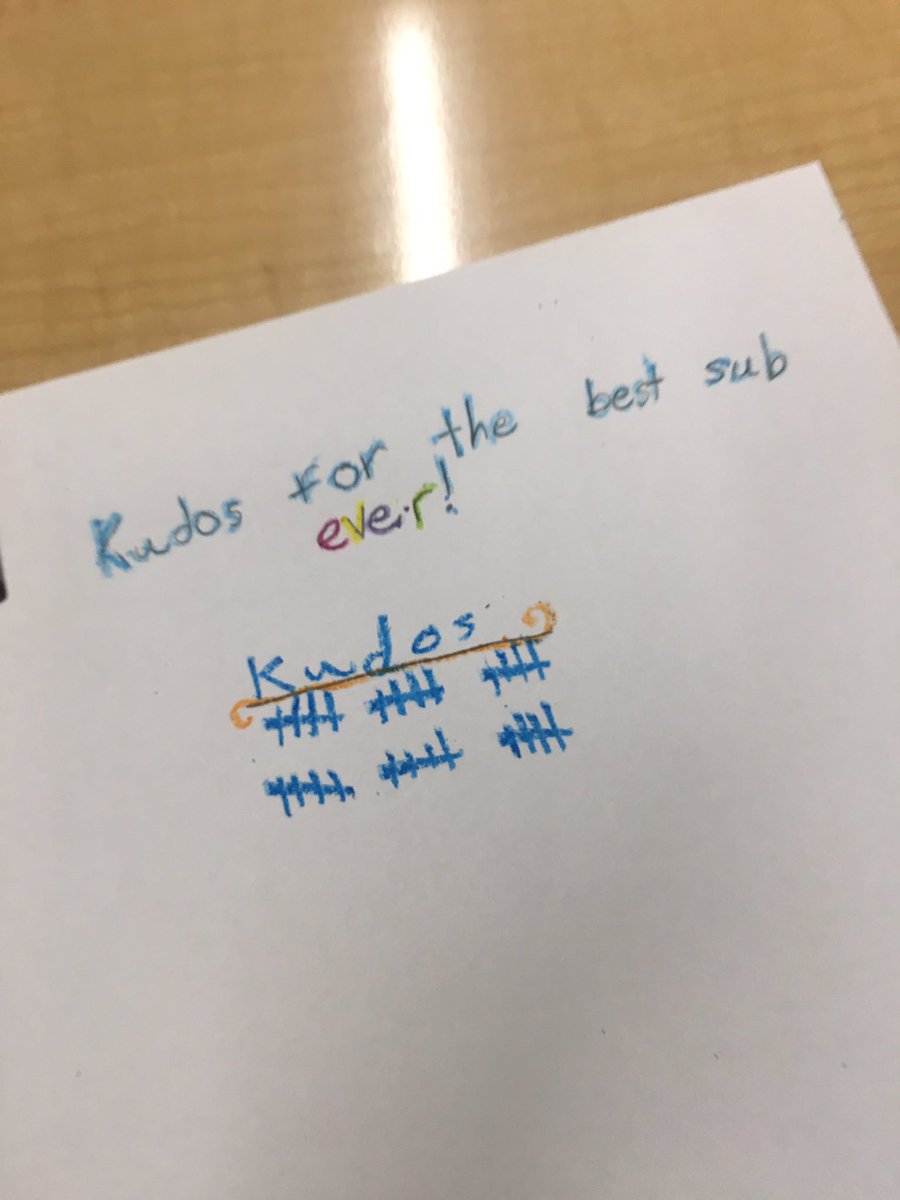 Kudos for the best sub
ever!
Kudos